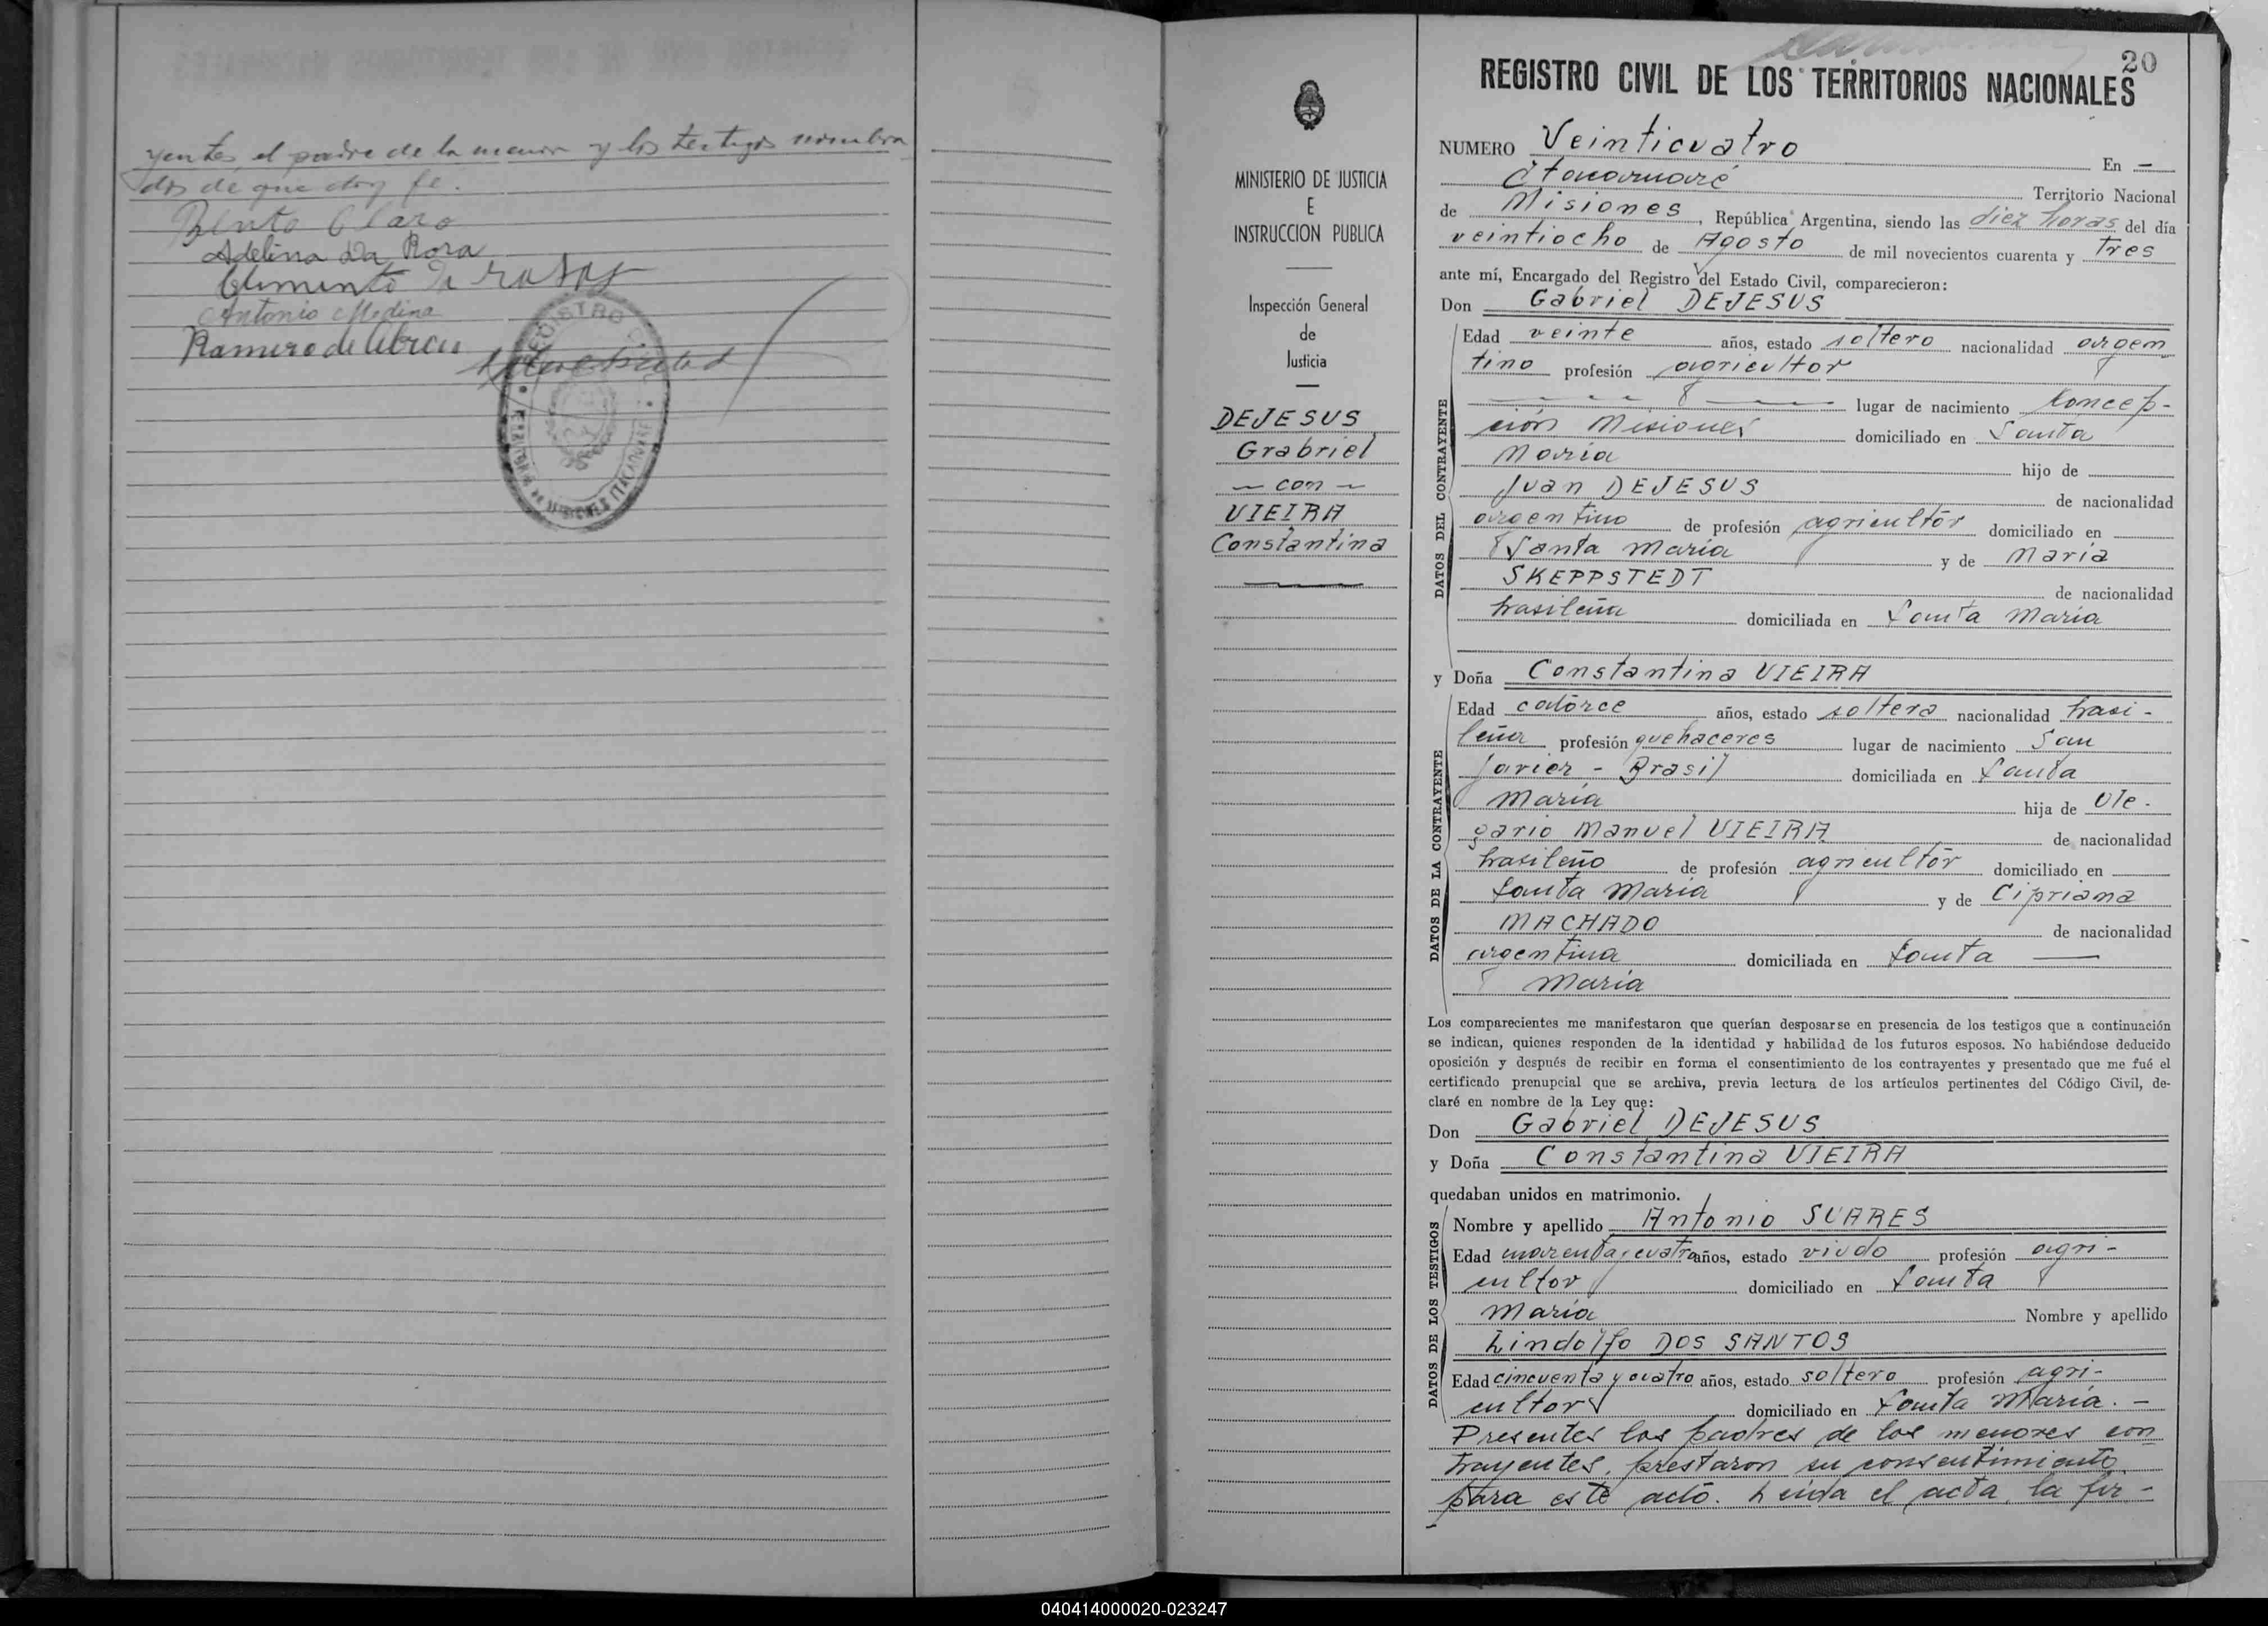 yentes el padre de la menor y los testigos nombra
dos de que doy fe.
Bento Claro
Adelina da Rosa
Antonio Medina
Ramiro de Abreu
MINISTERIO DE JUSTICIA
E
INSTRUCCION PUBLICA
Inspección General
de
Justicia
DEJESUS
Grabriel
— con —
VIEIRA
Constantina
20
REGISTRO CIVIL DE LOS TERRITORIOS NACIONALES
NUMERO Veinticuatro En —
Itacaruaré Territorio Nacional
de Misiones, República Argentina, siendo las diez horas del día
veintiocho de Agosto de mil novecientos cuarenta y tres
ante mí, Encargado del Registro del Estado Civil, comparecieron:
Don Gabriel DEJESUS
DATOS DEL CONTRAYENTE
Edad veinte años, estado soltero nacionalidad argen
tino profesión agricultor
lugar de nacimiento Concep-
ción Misiones domiciliado en Santa
María hijo de
Juan DEJESUS de nacionalidad
argentino de profesión agricultor domiciliado en
Santa María y de María
SKEPPSTEDT de nacionalidad
brasileña domiciliada en Santa María
y Doña Constantina VIEIRA
DATOS DE LA CONTRAYENTE
Edad catorce años, estado soltera nacionalidad brasi-
leña profesión quehaceres lugar de nacimiento San
Javier - Brasil domiciliada en Santa
María hija de Ole-
gario Manuel VIEIRA de nacionalidad
brasileño de profesión agricultor domiciliado en
Santa María y de Cipriana
MACHADO de nacionalidad
argentina domiciliada en Santa —
María
Los comparecientes me manifestaron que querían desposarse en presencia de los testigos que a continuación
se indican, quienes responden de la identidad y habilidad de los futuros esposos. No habiéndose deducido
oposición y después de recibir en forma el consentimiento de los contrayentes y presentado que me fué el
certificado prenupcial que se archiva, previa lectura de los artículos pertinentes del Código Civil, de-
claré en nombre de la Ley que:
Don Gabriel DEJESUS
y Doña Constantina VIEIRA
quedaban unidos en matrimonio.
DATOS DE LOS TESTIGOS
Nombre y apellido Antonio SUARES
Edad cuarenta y cuatro años, estado viudo profesión agri-
cultor domiciliado en Santa
María Nombre y apellido
Lindolfo DOS SANTOS
Edad cincuenta y cuatro años, estado soltero profesión agri-
cultor domiciliado en Santa María. —
Presentes los padres de los menores con
trayentes, prestaron su consentimiento
para este acto. Leída el acta, la fir-
040414000020-023247